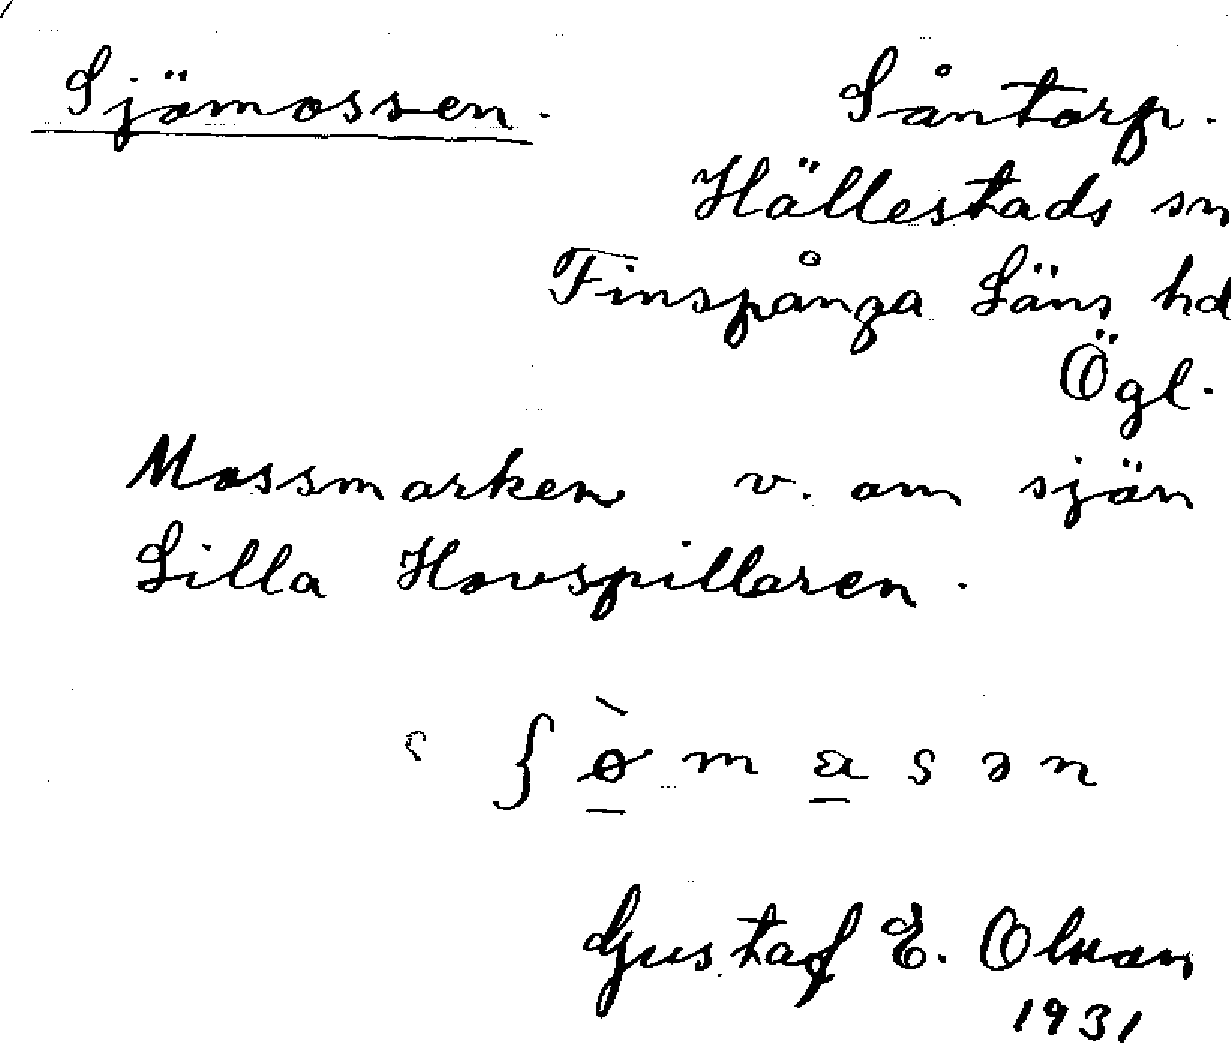 Sjömossen. Såntorp.
Hällestads sn
Finspånga Läns hd
Ögl.
Mossmarken v. om sjön
Lilla Hovspillaren.
ʃ ö̀ m a s ə n
Gustaf E. Olson
1931